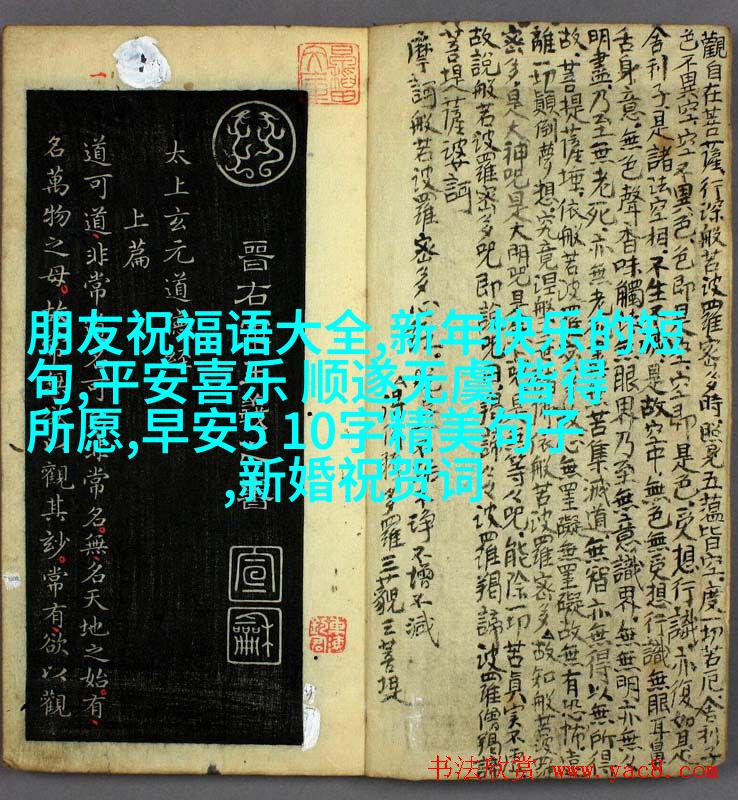 朋友祝福语大全,新年快乐的短
句,平安喜乐 顺遂无虞 皆得
所愿,早安5 10字精美句子
,新婚祝贺词
觀自在菩薩行深般若波羅蜜多時照見五蘊皆空度一切苦厄舍利子
色不異空空不異色色即是空空即是色受想行識亦復如是
舍利子是諸法空相不生是故空中無色無受想行識無眼耳鼻
舌身意無色聲香味觸眼界乃至無意識界無無明亦無
明盡乃至無老死亦無老苦集滅道無智亦無得以無所得
故菩提薩埵依般若波羅無罣礙無罣礙故無有恐怖遠
離一切顛倒夢想究竟涅波羅蜜多故知般若波
密多是大神咒是大明咒是等々咒能除一切苦真實不虛
故說般若波羅密多咒即說咒波羅揭諦波羅僧揭諦
菩提薩婆訶
摩訶般若波羅密多
淨不增不減
多羅三藐三菩提
晉右
太上玄元道
上篇
道可道非常可非常名無名天地之始有
名萬物之母觀其妙常有欲以觀
宣
龢
书法欣赏 www.yac8.com